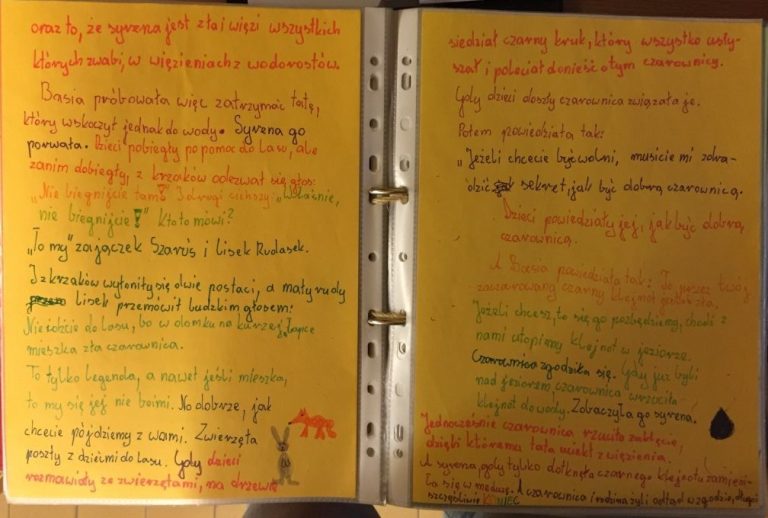 oraz to, że syrena jest zła i więzi wszystkich
których zwabi, w więzieniach z wodorostów.
Basia próbowała więc zatrzymać tatę,
który wskoczył jednak do wody. Syrena go
porwała. Dzieci pobiegły po pomoc do lasu, ale
zanim dobiegły, z krzaków odezwał się głos:
"Nie biegnijcie tam!" Za drugi cichszy: "Właśnie,
nie biegnijcie!" Kto to mówi?
"To my" zajączek Szaruś i lisek Rudasek.
I z krzaków wyłoniły się dwie postaci, a mały rudy
lisek przemówił ludzkim głosem:
Nie idźcie do lasu, bo w domku na kurzej łapce
mieszka zła czarownica.
To tylko legenda, a nawet jeśli mieszka,
to my się jej nie boimy. No dobrze, jak
chcecie pójdziemy z wami. Zwierzęta
poszły z dziećmi do lasu. Gdy dzieci
rozmawiały ze zwierzętami, na drzewie
siedział czarny kruk, który wszystko usły-
szał i poleciał donieść o tym czarownicy.
Gdy dzieci doszły czarownica związała je.
Potem powiedziała tak:
"Jeżeli chcecie być wolni, musicie mi zdra-
dzić sekret, jak być dobrą czarownicą.
Dzieci powiedziały jej, jak być dobrą
czarownicą.
A Basia powiedziała tak: To przez twój
zaczarowany czarny klejnot jesteś zła.
Jeżeli chcesz, to się go pozbędziemy, chodź z
nami utopimy klejnot w jeziorze.
Czarownica zgodziła się. Gdy już byli
nad jeziorem czarownica wrzuciła
klejnot do wody. Zobaczyła go syrena.
Jednocześnie czarownica rzuciła zaklęcie,
dzięki któremu tata uciekł z więzienia.
A syrena, gdy tylko dotknęła czarnego klejnotu zamieni-
ła się w meduzę. A czarownica i rodzina żyli odtąd w zgodzie, długo i
szczęśliwie KONIEC